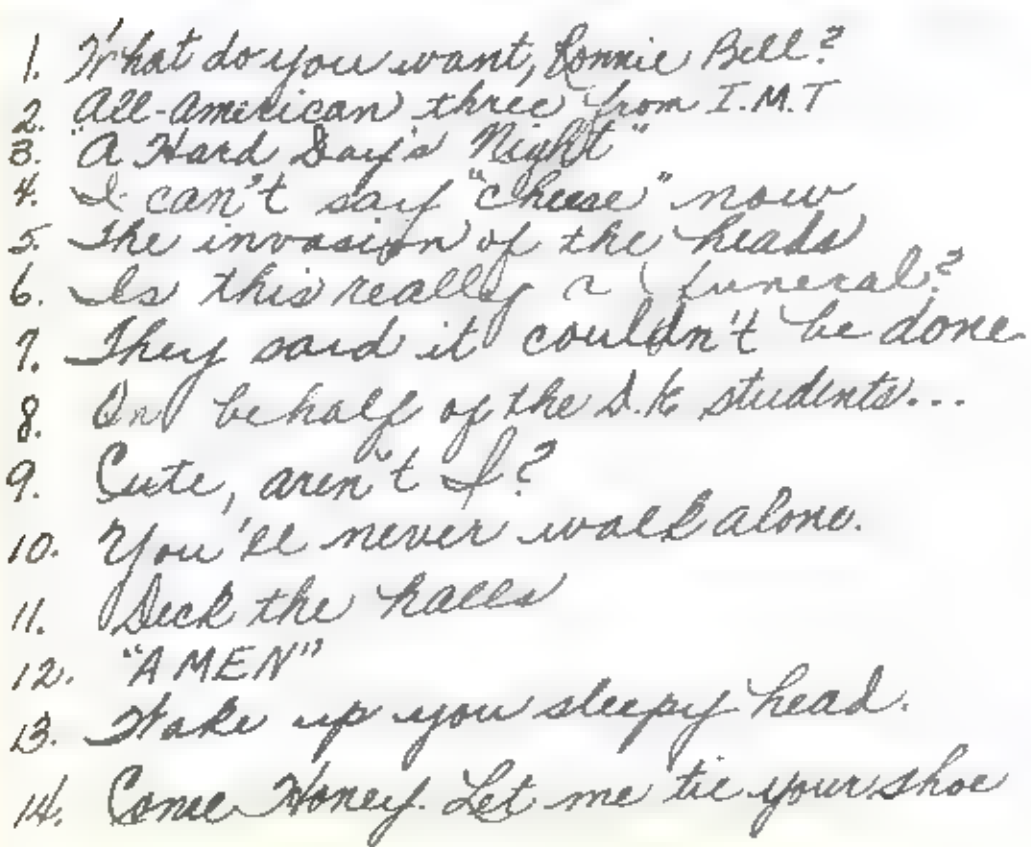 1. What do you want, Ronnie Bell?
2. All-American three from I.M.T
3. "A Hard Day's Night"
4. I can't say "cheese" now
5. The invasion of the heads
6. Is this really a funeral?
7. They said it couldn't be done
8. On behalf of the D.K. students...
9. Cute, aren't I?
10. You'll never walk alone.
11. Deck the halls
12. "AMEN"
13. Wake up you sleepy head.
14. Come Honey. Let me tie your shoe